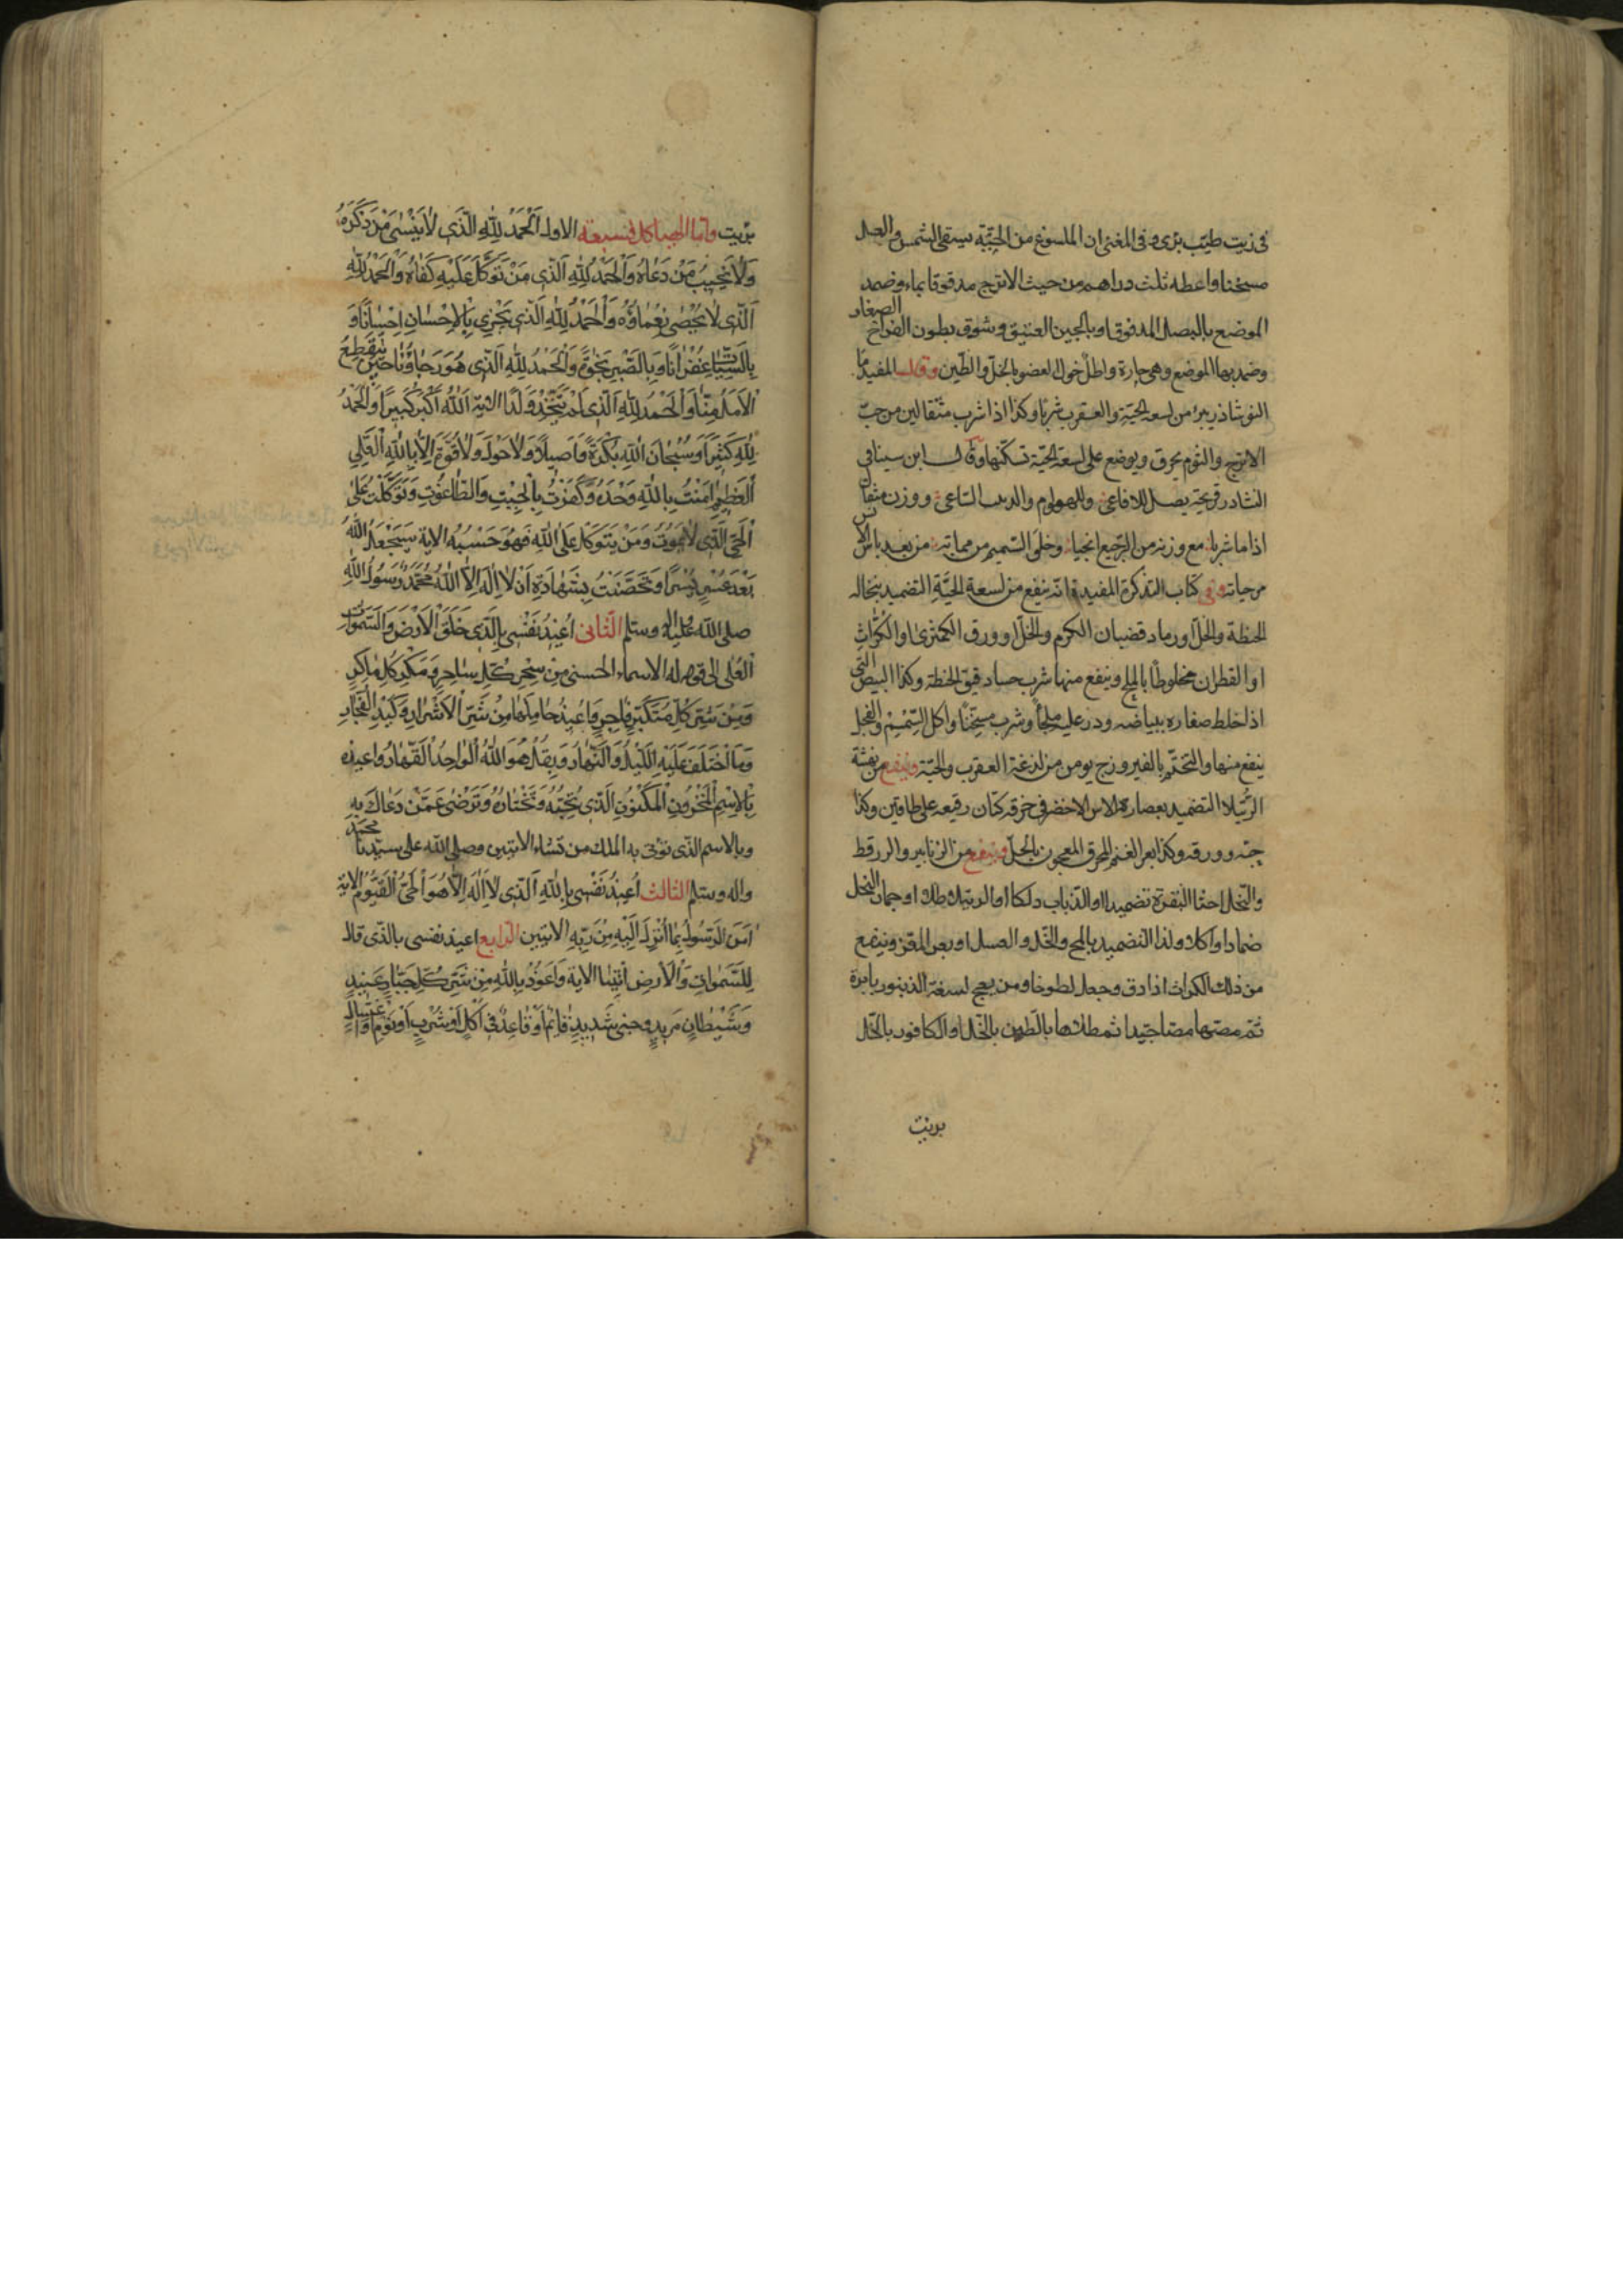 في زيت طيب برى وفى المغنى ان الملسوع من الحيّة يسقى الشمس والعسل
مسخنا واعطه ثلث دراهم من حيث الاترج مدقوقا بماء وضمد
الموضع بالبصل المدقوق او بالجبن العتيق وشوق بطون الفراخ الصغار
وضمد بها الموضع وهى حارة واطل حول العضو بالخل والطين وقال المفيد ما
النوشاذر يبرا من لسعة الحيّة والعقرب شربا وكذا اذا شرب مثقالين من حبّ
الاترج والثوم يحرق ويوضع على لسعة الحيّة تسكنها وقال ابن سينا فى
النشادر فى يصل للافاعى وللهوام والدبيب الساعى ووزن مثقال
اذا ما شربا مع وزنه من الرجيع انجيا وخلى السميم من مماته من بعد ياس الناس
من حياته وفى كتاب التذكرة المفيدة انه ينفع من لسعة الحيّة التضميد بنخالة
الحنطة والخل او رماد قضبان الكرم والخل او ورق الكمثرى او الكرّاث
او القطران مخلوطا بالملح وينفع منها شرب حسا دقيق الحنطة وكذا البيض النى
اذا خلط صفاره ببياضه وذر عليه ملحا وشرب مسخنا واكل السّمسم والفجل
ينفع منها والتختّم بالفيروزج يومن من لذغة العقرب والحيّة وينفع من نهشة
الرّتيلا التضميد بعصارة الاس الاخضر فى خرقة كتان رفيعه على طاقتين وكذا
حبّه وورقه وكذا بعر الغنم المحرق المعجون بالخلّ وينفع من الزنابير والزرقط
والنّحل اخثا البقرة تضميدا او الذباب دلكا او الرتيلا طلا او جمار النخل
ضمادا واكلا وكذا التضميد بالملح والخل والعسل او بعر المعز وينفع
من ذلك الكراث اذا دق وجعل لطوخا ومن بعج لسعة الذنبور بابرة
ثم مصّها مصّا جيّدا ثم طلاها بالطين بالخل او الكافور بالخل
بريت
بريت وامّا الهياكل فسبعة الاول اَلْحَمْدُ لِلّهِ الَّذى لا يَنْسى مَنْ ذَكَرَهُ
وَلا يُخَيِّبُ مَنْ دَعاهُ وَالْحَمْدُ لِلّهِ الَّذى مَنْ تَوَكَّلَ عَلَيْهِ كَفاهُ وَالْحَمْدُ لِلّهِ
الَّذى لا يُحْصى نَعْماؤُهُ وَالْحَمْدُ لِلّهِ الَّذى يَجْزِى بِالاِحْسانِ اِحْساناً وَ
بِالسَّيِّئاتِ غُفْراناً وَبِالصَّبْرِ نَجاةً وَالْحَمْدُ لِلّهِ الَّذى هُوَ رَجاؤُنا حينَ يَنْقَطِعُ
الاَمَلُ مِنّا وَالْحَمْدُ لِلّهِ الَّذى لَمْ يَتَّخِذْ وَلَداً الاية اَللهُ اَكْبَرُ كَبيراً وَالْحَمْدُ
لِلّهِ كَثيراً وَسُبْحانَ اللهِ بُكْرَةً وَاَصيلاً وَلا حَوْلَ وَلا قُوَّةَ اِلّا بِاللهِ الْعَلِىِّ
الْعَظيمِ امَنْتُ بِاللهِ وَحْدَهُ وَكَفَرْتُ بِالْجِبْتِ وَالطّاغُوتِ وَتَوَكَّلْتُ عَلى
الْحَىِّ الَّذى لا يَمُوتُ وَمَنْ يَتَوَكَّلْ عَلَى اللهِ فَهُوَ حَسْبُهُ الاية سَيَجْعَلُ اللهُ
بَعْدَ عُسْرٍ يُسْراً وَتَحَصَّنْتُ بِشَهادَةِ اَنْ لا اِلهَ اِلّا اللهُ مُحَمَّدٌ رَسُولُ اللهِ
صلى الله عليه واله وسلم الثّانى اُعيذُ نَفْسى بِالَّذى خَلَقَ الْاَرْضَ وَالسَّمواتِ
الْعُلى الى قوله له الاسماء الحسنى مِنْ سِحْرِ كُلِّ ساحِرٍ وَمَكْرِ كُلِّ ماكِرٍ
وَمِنْ شَرِّ كُلِّ مُتَكَبِّرٍ فاجِرٍ وَاُعيذُ حامِلَها مِنْ شَرِّ الْاَشْرارِ وَكَيْدِ الْفُجّارِ
وَمَا اخْتَلَفَ عَلَيْهِ اللَّيْلُ وَالنَّهارُ وَبِقُلْ هُوَ اللهُ الْواحِدُ الْقَهّارُ واعيذه
بِالْاِسْمِ الْمَخْزُونِ الْمَكْنُونِ الَّذى تُحِبُّهُ وَتَخْتارُهُ وَتَرْضى عَمَّنْ دَعاكَ بِهِ
وبالاسم الذى توتى به الملك من تشاء الايتين وصلى الله على سيّدنا محمّد
واله وسلم الثالث اُعيذُ نَفْسى بِاللهِ الَّذى لا اِلهَ اِلّا هُوَ الْحَىُّ الْقَيُّومُ الاية
امَنَ الرَّسُولُ بِما اُنْزِلَ اِلَيْهِ مِنْ رَبِّهِ الايتين الرّابع اعيذ نفسى بالّذى قال
لِلسَّمواتِ وَالْاَرْضِ ائْتِيا الاية وَاَعُوذُ بِاللهِ مِنْ شَرِّ كُلِّ جَبّارٍ عَنيدٍ
وَشَيْطانٍ مَريدٍ وجنى شَديدٍ قائِماً اَوْ قاعِدٌ فى اَكْلٍ اَوْ شُرْبٍ اَوْ نَوْمٍ اَوْ اغْتِسالٍ